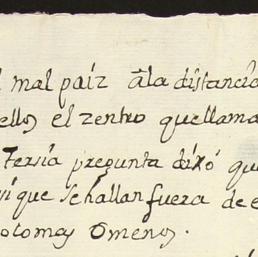 mal paíz âla distancia
ellos el zentro quellama
Tersia pregunta dixó que
que Sehallan fuera de e
otomas Omenos.